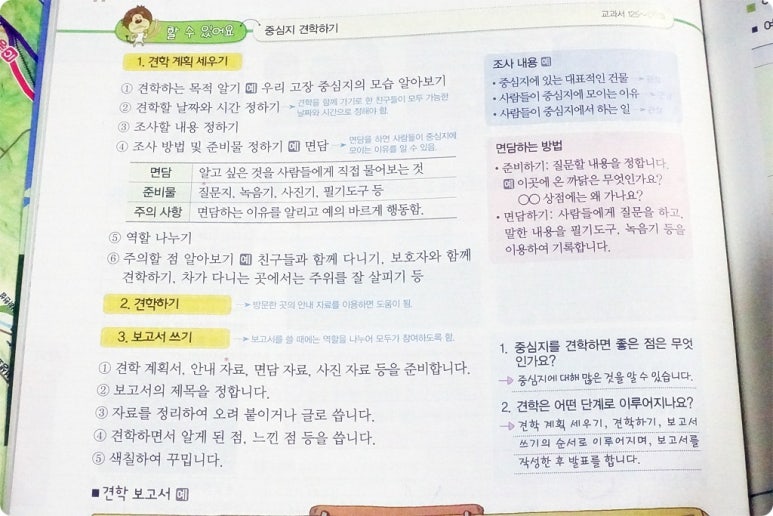 할 수 있어요
중심지 견학하기
교과서 125~
1. 견학 계획 세우기
① 견학하는 목적 알기 예 우리 고장 중심지의 모습 알아보기
② 견학할 날짜와 시간 정하기 → 견학을 함께 가기로 한 친구들이 모두 가능한
날짜와 시간으로 정해야 함.
③ 조사할 내용 정하기
④ 조사 방법 및 준비물 정하기 예 면담 → 면담을 하면 사람들이 중심지에
모이는 이유를 알 수 있음.
면담 알고 싶은 것을 사람들에게 직접 물어보는 것
준비물 질문지, 녹음기, 사진기, 필기도구 등
주의 사항 면담하는 이유를 알리고 예의 바르게 행동함.
⑤ 역할 나누기
⑥ 주의할 점 알아보기 예 친구들과 함께 다니기, 보호자와 함께
견학하기, 차가 다니는 곳에서는 주위를 잘 살피기 등
2. 견학하기 → 방문한 곳의 안내 자료를 이용하면 도움이 됨.
3. 보고서 쓰기 → 보고서를 쓸 때에는 역할을 나누어 모두가 참여하도록 함.
① 견학 계획서, 안내 자료, 면담 자료, 사진 자료 등을 준비합니다.
② 보고서의 제목을 정합니다.
③ 자료를 정리하여 오려 붙이거나 글로 씁니다.
④ 견학하면서 알게 된 점, 느낀 점 등을 씁니다.
⑤ 색칠하여 꾸밉니다.
■ 견학 보고서 예
조사 내용 예
• 중심지에 있는 대표적인 건물
• 사람들이 중심지에 모이는 이유
• 사람들이 중심지에서 하는 일
면담하는 방법
• 준비하기: 질문할 내용을 정합니다.
예 이곳에 온 까닭은 무엇인가요?
○○ 상점에는 왜 가나요?
• 면담하기: 사람들에게 질문을 하고,
말한 내용을 필기도구, 녹음기 등을
이용하여 기록합니다.
1. 중심지를 견학하면 좋은 점은 무엇
인가요?
→ 중심지에 대해 많은 것을 알 수 있습니다.
2. 견학은 어떤 단계로 이루어지나요?
→ 견학 계획 세우기, 견학하기, 보고서
쓰기의 순서로 이루어지며, 보고서를
작성한 후 발표를 합니다.